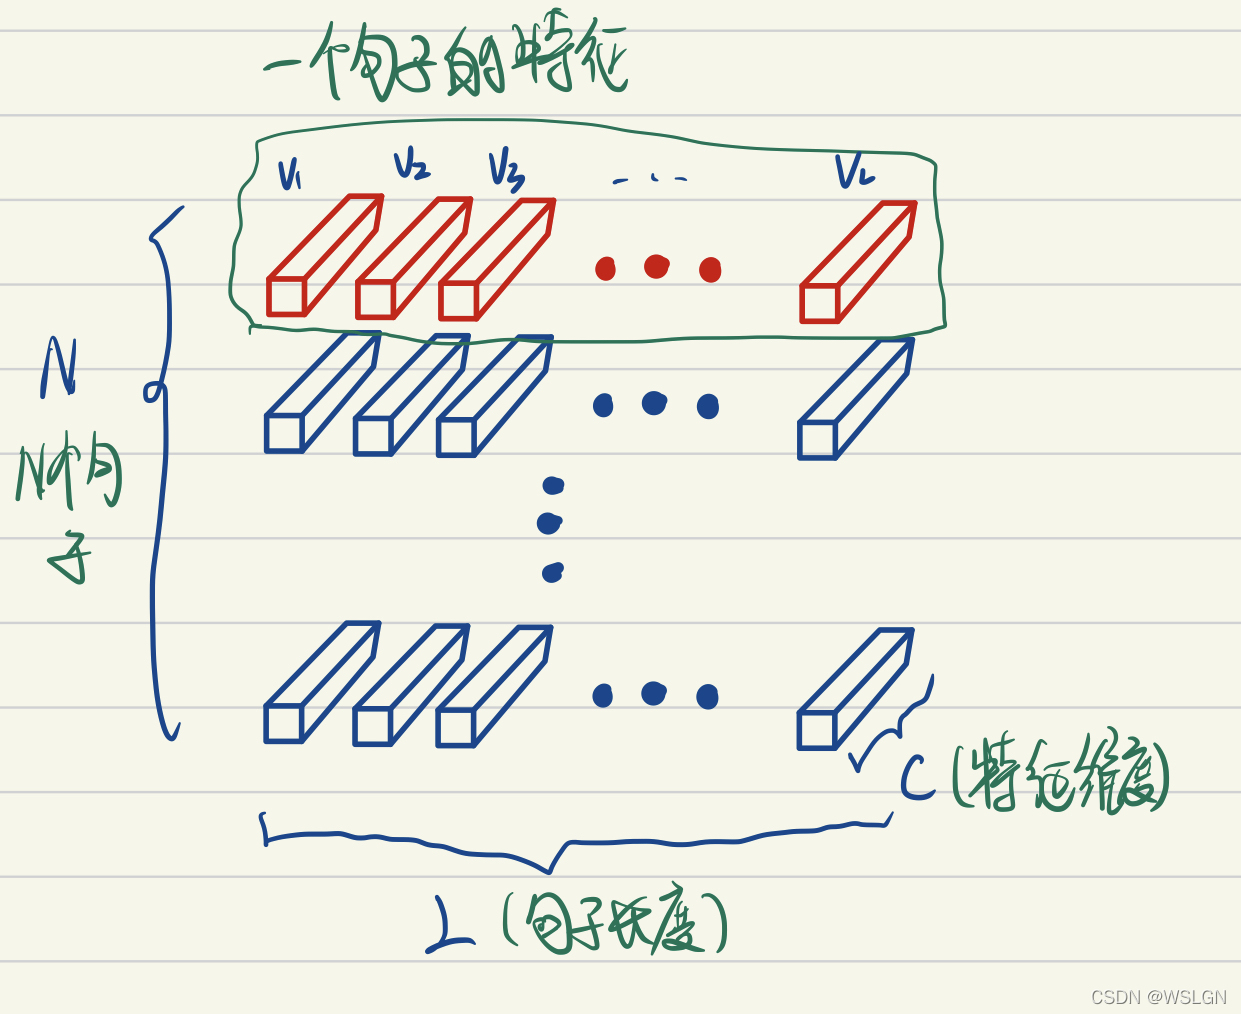 一个句子的特征
V1 V2 V3 ... VL
N
N个句
子
C (特征维度)
L (句子长度)
CSDN @WSLGN